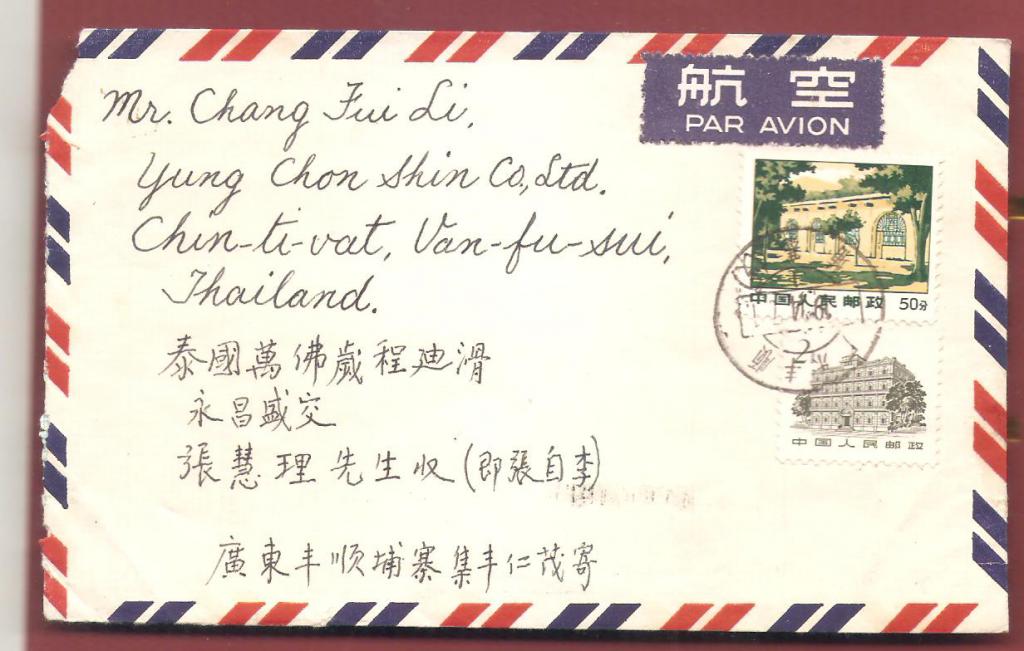 航空
PAR AVION
Mr. Chang Fui Li,
Yung Chon Shin Co., Ltd.
Chin-ti-vat, Van-fu-sui,
Thailand.
中国人民邮政 50分
中国人民邮政
泰國萬佛歲程廸滑
永昌盛交
張慧理先生収(即張自李)
廣東丰顺埔寨集丰仁茂寄